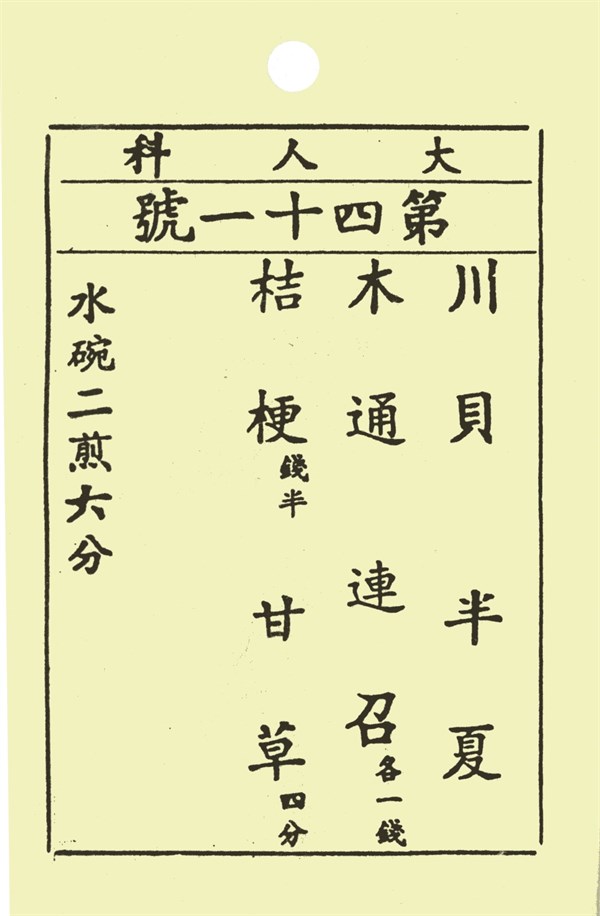 大人科
第四十一號
川貝半夏
木通連召各一錢
桔梗錢半甘草四分
水碗二煎六分